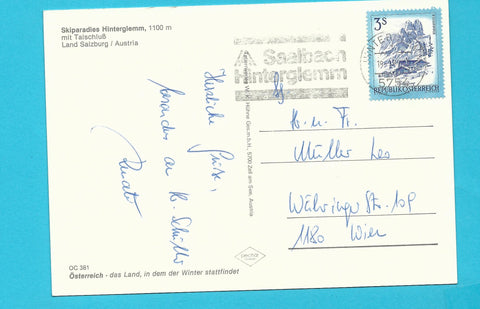 Skiparadies Hinterglemm, 1100 m
mit Talschluß
Land Salzburg / Austria
Herzliche Grüße,
besonders an
Renate
OC 361
Österreich - das Land, in dem der Winter stattfindet
Hühne Ges.m.b.H., 5700 Zell am See, Austria
Saalbach
Hinterglemm
3 S
REPUBLIK ÖSTERREICH
H. u. Fr.
Müller Leo
Währinger Str. 109
1180 Wien